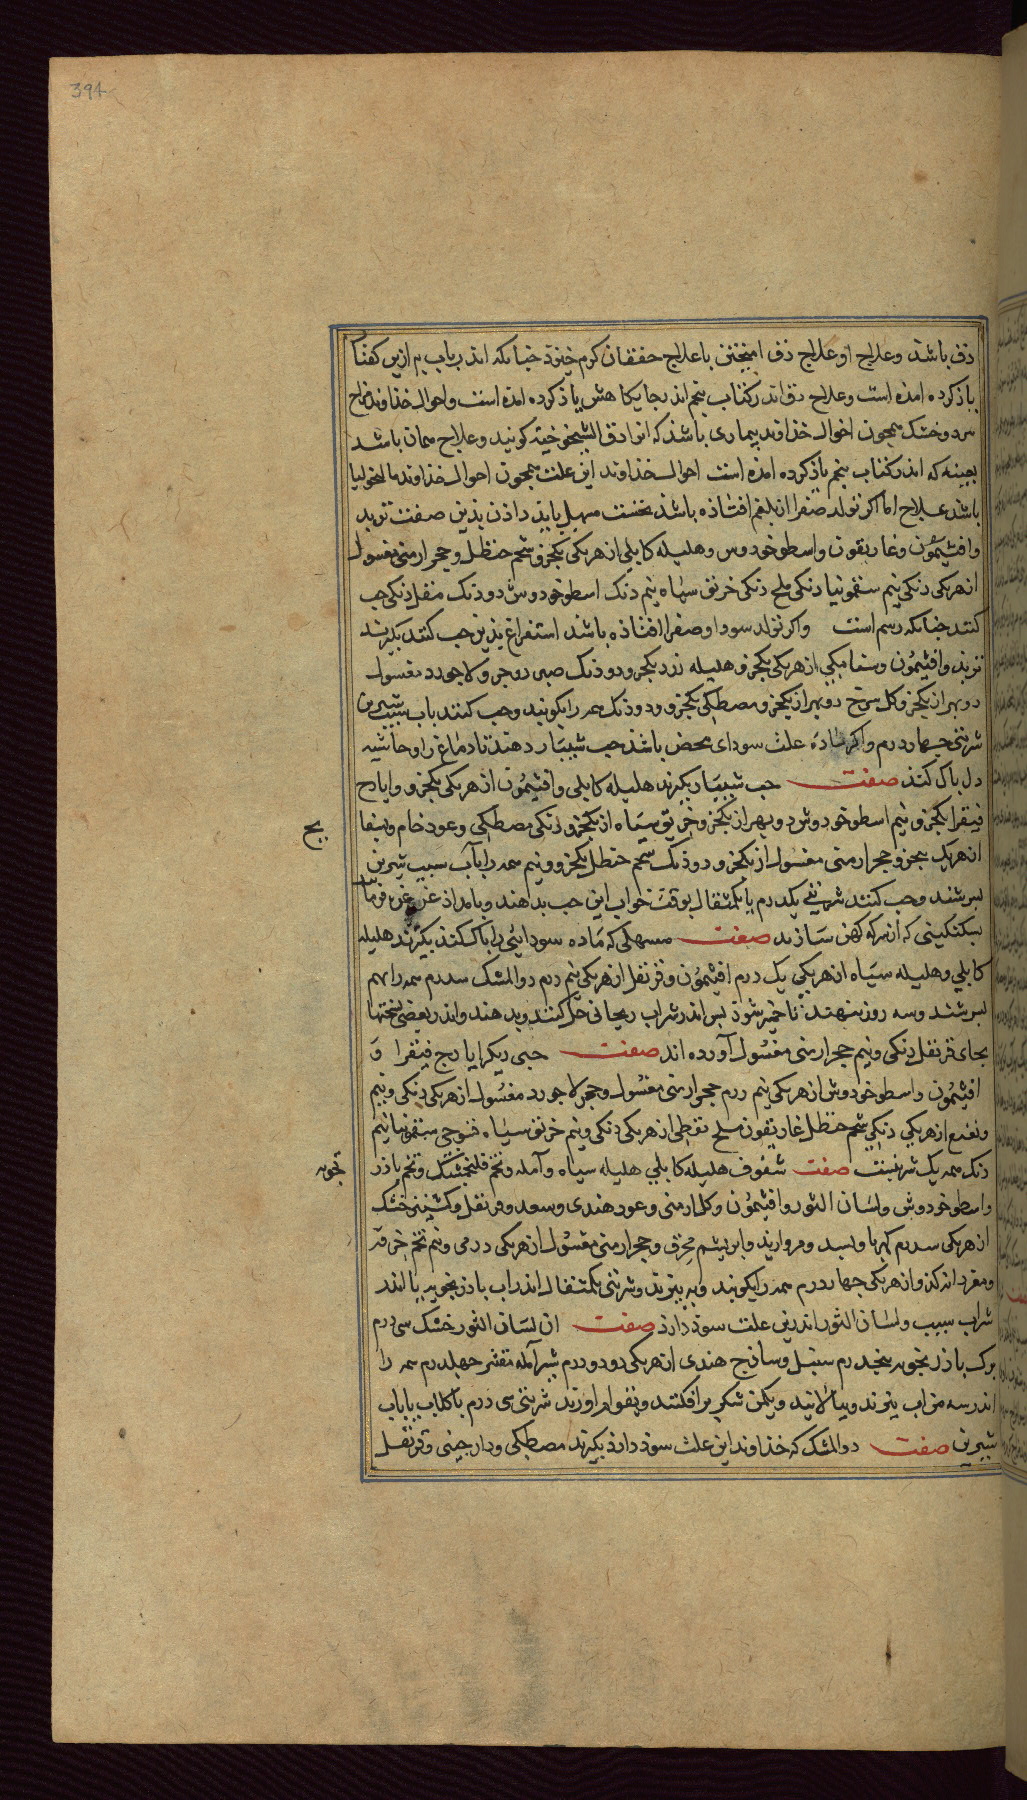 394
دق باشد وعلاج او علاج دق امیختن با علاج خفقان کرم چنانکه اندر باب پم ازین کفتار
یاذ کرده امذه است وعلاج دق اندر کتاب پنجم اندر جایکاهش یاذ کرده امذه است واحوال خذاوند مزاج
سرد وخشک همجون احوال خذاوند بیماری باشذ که انرا دق الشیخوخیه کویند وعلاج همان باشد
بعینه که اندر کتاب پنجم یاذ کرده امذه است احوال خذاوند این علت همجون احوال خذاوند مالنخولیا
باشد علاج اما اکر تولد صفرا از بلغم افتاذه باشذ نخست مسهل بایذ داذن بذین صفت تربد
وافتیمون وغاریقون واسطوخودوس وهلیله کابلی از هریکی یکجزو شحم حنظل وحجر ارمنی مغسول
از هریکی دنکی نیم سقمونیا دنکی ملح دنکی خربق سیاه نیم دنک اسطوخودوس دو دنک مقل دنکی حب
کنند جنانکه رسم است واکر تولد سودا وصفرا افتاذه باشد استفراغ بذین حب کنند بکیرند
تربد وافتیمون وسنا مکی از هریکی یکجزو هلیله زرد یکجزو دو دنک صبر دو جزو لاجورد مغسول
دو بهر از یکجزو کل سرخ دو بهر از یکجزو مصطکی یکجزو دو دنک همه را بکویند وحب کنند باب سیب شیرین
شربتی جهار درم واکر ماده علت سودای محض باشذ حب شبیار دهند تا دماغ را وحاشیه
دل باک کنذ صفت حب شبیار بکیرند هلیله کابلی وافتیمون از هریکی یکجزو وایارج
فیقرا یکجزو نیم اسطوخودوش دو بهر از یکجزو خربق سیاه از یکجزو دنکی مصطکی وعود خام وبسفایج
از هریک یکجزو حجر ارمنی مغسول از یکجزو دو دنک شحم حنظل یکجزو ونیم همه را باب سیب شیرین
بسرشند وحب کنند شربتی یکدرم یا یکمثقال بوقت خواب این حب بدهند وبامداذ غرغره فرمایند
بسکنکبینی که از سرکه کهن سازند صفت مسهلی که ماده سودائی را باک کنذ بکیرند هلیله
کابلی وهلیله سیاه از هریکی یک درم افتیمون وقرنفل از هریکی نیم درم دوالمشک سه درم همه را بهم
بسرشند وسه روز بنهند تا خمیر شوذ پس اندر شراب ریحانی حل کنند وبدهند واندر بعضی نسختها
بجای قرنفل دنکی ونیم حجر ارمنی مغسول آورده اند صفت حبی دیکر ایارج فیقرا و
افتیمون واسطوخودوش از هریکی نیم درم حجر ارمنی مغسول وحجر لاجورد مغسول از هریکی دنکی ونیم
ونعنع از هریکی دنکی شحم حنظل غاریقون ملح نفطی از هریکی دنکی ونیم خربق سیاه سقمونیا نیم
دنک همه یک شربتست صفت سفوف هلیله کابلی هلیله سیاه وآمله وتخم فلنجمشک وتخم باذر
نجبویه
واسطوخودوش ولسان الثور وافتیمون وکل ارمنی وعود هندی وسعد وقرنفل وکشنیز خشک
از هریکی سه درم کهربا وبسد ومروارید وابریشم محرق وحجر ارمنی مغسول از هریکی درمی ونیم تخم خرفه
از هریکی جهار درم همه را بکویند وببیزند وشربتی یکمثقال اندر اب باذرنجبویه یا اندر
شراب سیب ولسان الثور اندرین علت سوذ دارذ صفت ان لسان الثور خشک سی درم
برک باذرنجبویه پنجدرم سنبل وساذج هندی از هریکی دو درم شیرآمله مقشر جهل درم همه را
اندر سه من اب بپزند وبپالایند ویکمن شکر برافکنند وبقوام اورند شربتی سی درم با کلاب یا باب
شیرین صفت دوالمشک که خذاوند این علت سوذ دارذ بکیرند مصطکی ودارجینی وقرنفل